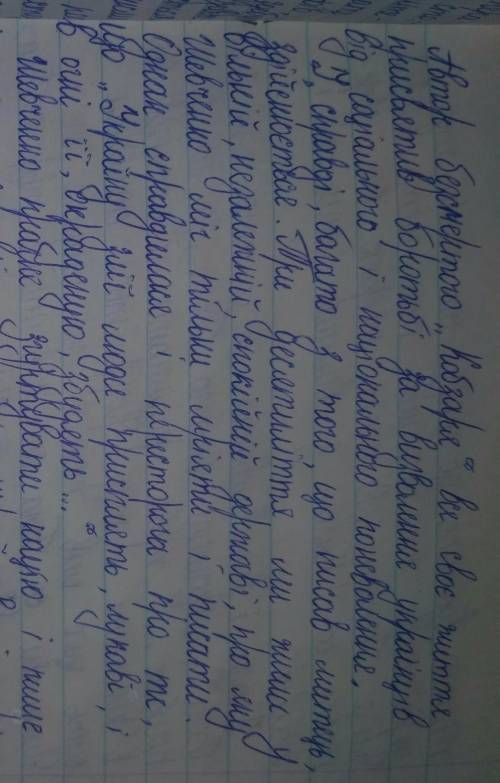 Автор безсмертого „Кобзаря" все своє життя
присвятив боротьбі за визволення українців
від соціального і національного поневолення.
І, справді, багато з того, що писав митець,
здійснилося. Три десятиліття ми жили у
вільній, незалежній, спокійній державі, про яку
Шевченко міг тільки мріяти і писати.
Однак справдилася і пересторога про те,
що „Україну злії люде присплять, лукаві, і
в огні її, окраденую, збудять..."
Шевченко пробує згуртувати націю і пише